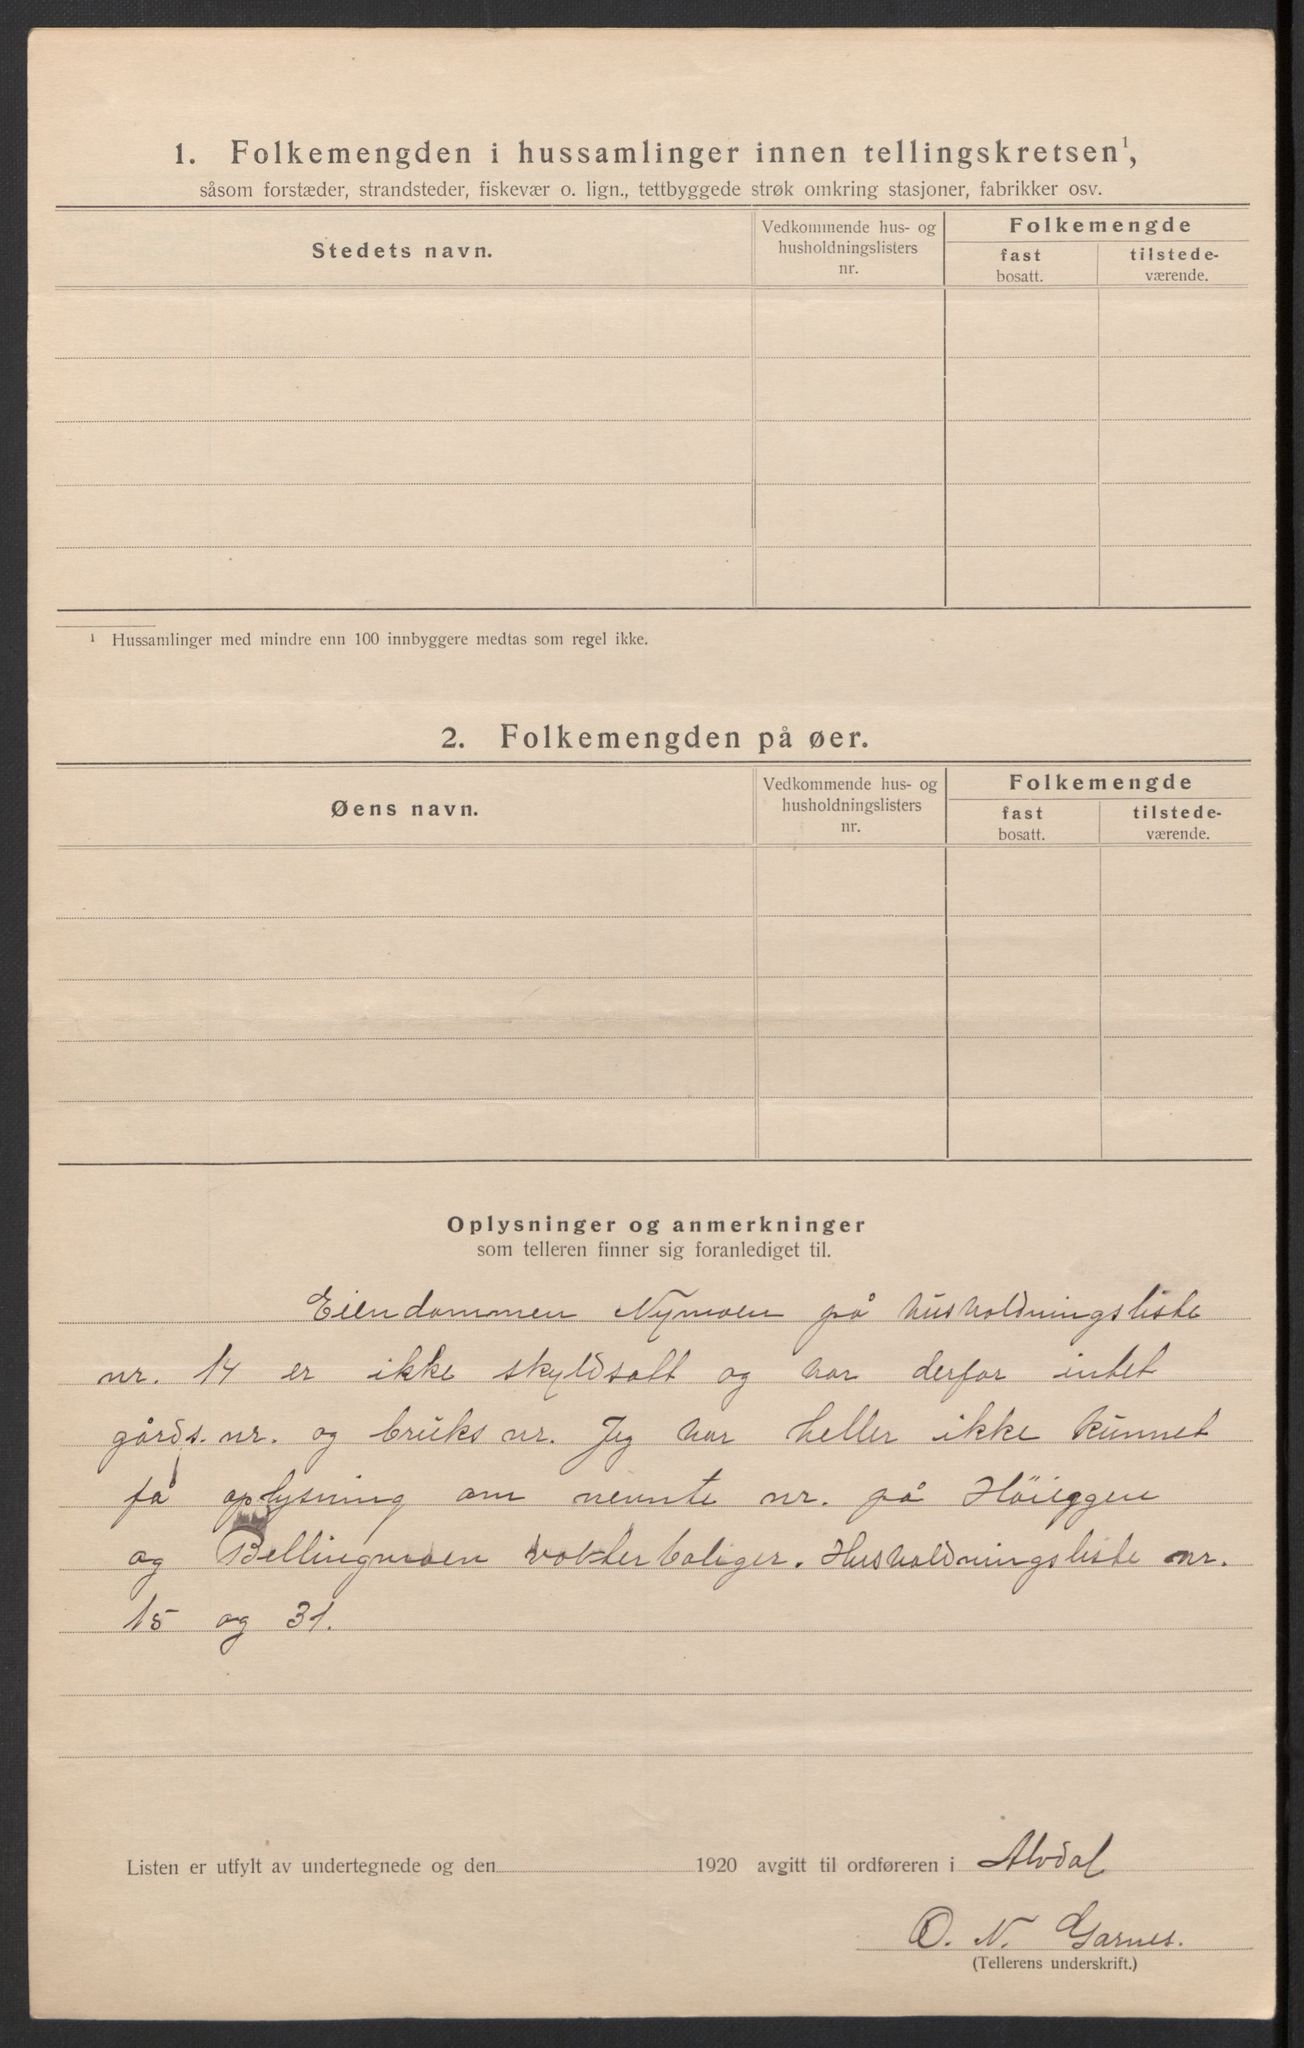 1. Folkemengden i hussamlinger innen tellingskretsen¹,
såsom forstæder, strandsteder, fiskevær o. lign., tettbyggede strøk omkring stasjoner, fabrikker osv.
Stedets navn.
Vedkommende hus- og
husholdningslisters
nr.
Folkemengde
fast
bosatt.
tilstede-
værende.
¹ Hussamlinger med mindre enn 100 innbyggere medtas som regel ikke.
2. Folkemengden på øer.
Øens navn.
Vedkommende hus- og
husholdningslisters
nr.
Folkemengde
fast
bosatt.
tilstede-
værende.
Oplysninger og anmerkninger
som telleren finner sig foranlediget til.
Eiendommen Nymoen på husholdningsliste
nr. 14 er ikke skyldsatt og har derfor intet
gårds. nr. og bruks nr. Jeg har heller ikke kunnet
få oplysning om nevnte nr. på Höieggen
og Bellingmoen vokterboliger. Husholdningsliste nr.
15 og 31.
Listen er utfylt av undertegnede og den 1920 avgitt til ordføreren i Alvdal
O. N. Garnes.
(Tellerens underskrift.)